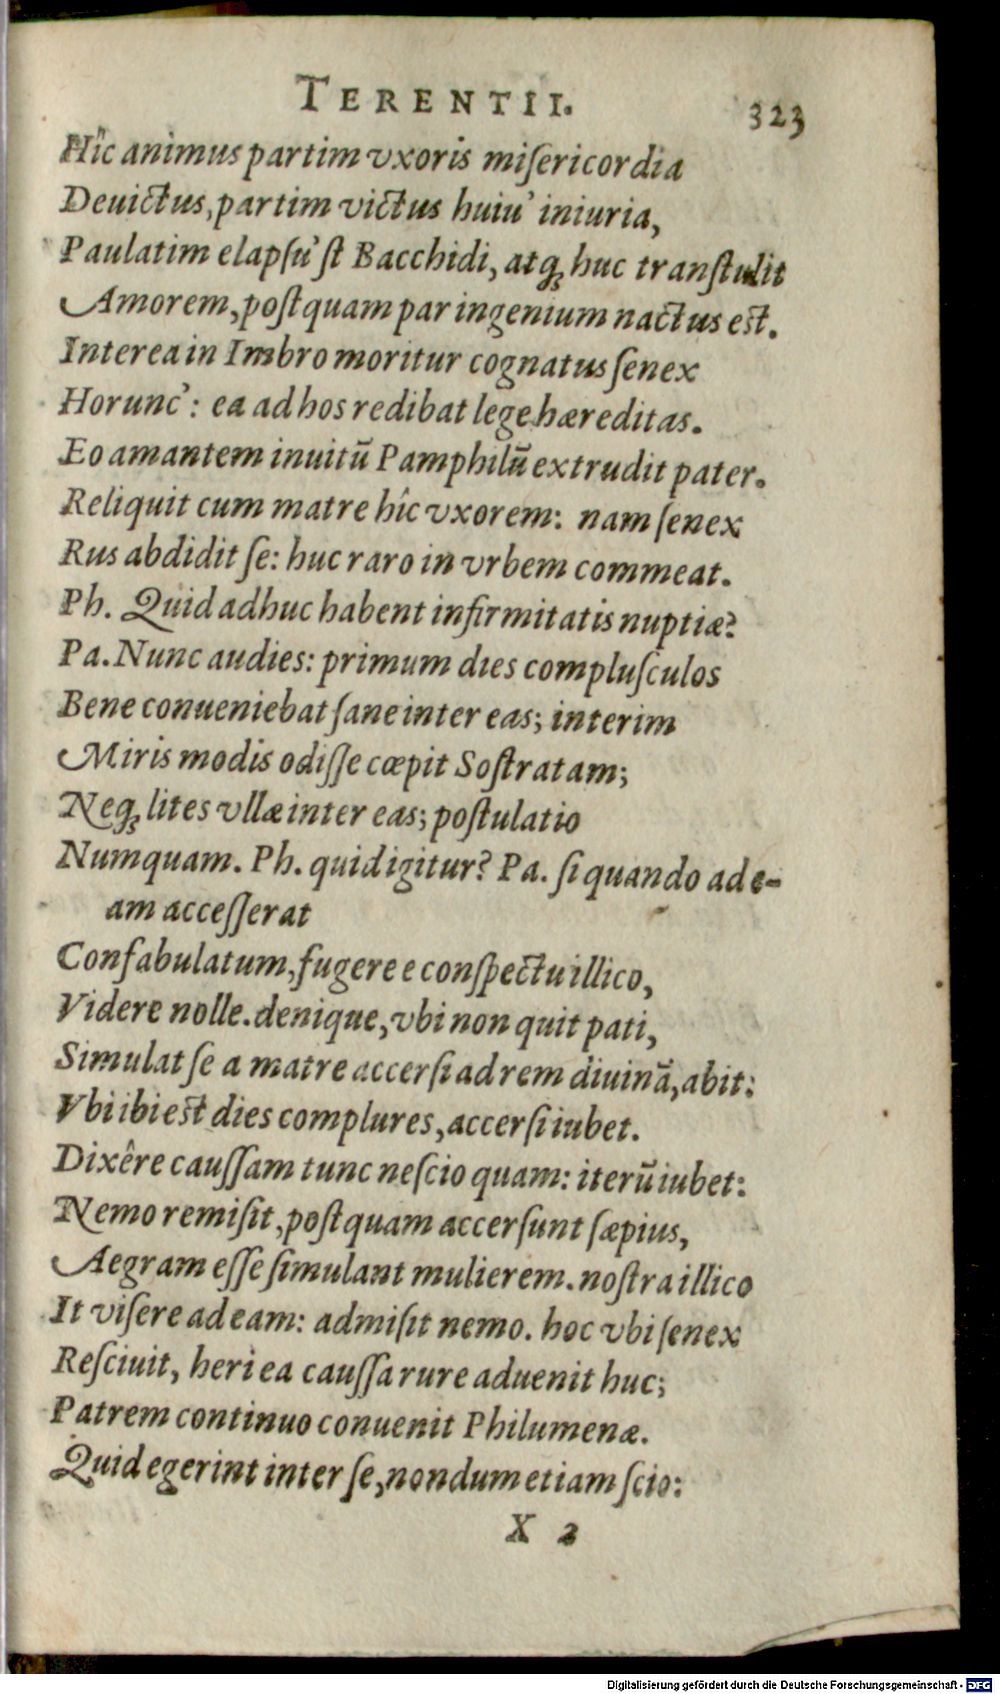 TERENTII. 323
Hîc animus partim vxoris miſericordia
Deuictus, partim victus huiu' iniuria,
Paulatim elapſu' ſt Bacchidi, atqꝫ huc tranſtulit
Amorem, poſtquam par ingenium nactus est.
Interea in Imbro moritur cognatus ſenex
Horunc': ea ad hos redibat lege hæreditas.
Eo amantem inuitū Pamphilū extrudit pater.
Reliquit cum matre hîc vxorem: nam ſenex
Rus abdidit ſe: huc raro in vrbem commeat.
Ph. Quid adhuc habent infirmitatis nuptiæ?
Pa. Nunc audies: primum dies compluſculos
Bene conueniebat ſane inter eas; interim
Miris modis odiſſe cœpit Soſtratam;
Neqꝫ lites vllæ inter eas; poſtulatio
Numquam. Ph. quid igitur? Pa. ſi quando ad e-
am acceſſerat
Confabulatum, fugere e conſpectu illico,
Videre nolle. denique, vbi non quit pati,
Simulat ſe a matre accerſi ad rem diuinā, abit:
Vbi ibi est dies complures, accerſi iubet.
Dixêre cauſſam tunc neſcio quam: iterū iubet:
Nemo remiſit, poſtquam accerſunt ſæpius,
Aegram eſſe ſimulant mulierem. noſtra illico
It viſere ad eam: admiſit nemo. hoc vbi ſenex
Reſciuit, heri ea cauſſa rure aduenit huc;
Patrem continuo conuenit Philumenæ.
Quid egerint inter ſe, nondum etiam ſcio:
X 2
Digitalisierung gefördert durch die Deutsche Forschungsgemeinschaft - DFG